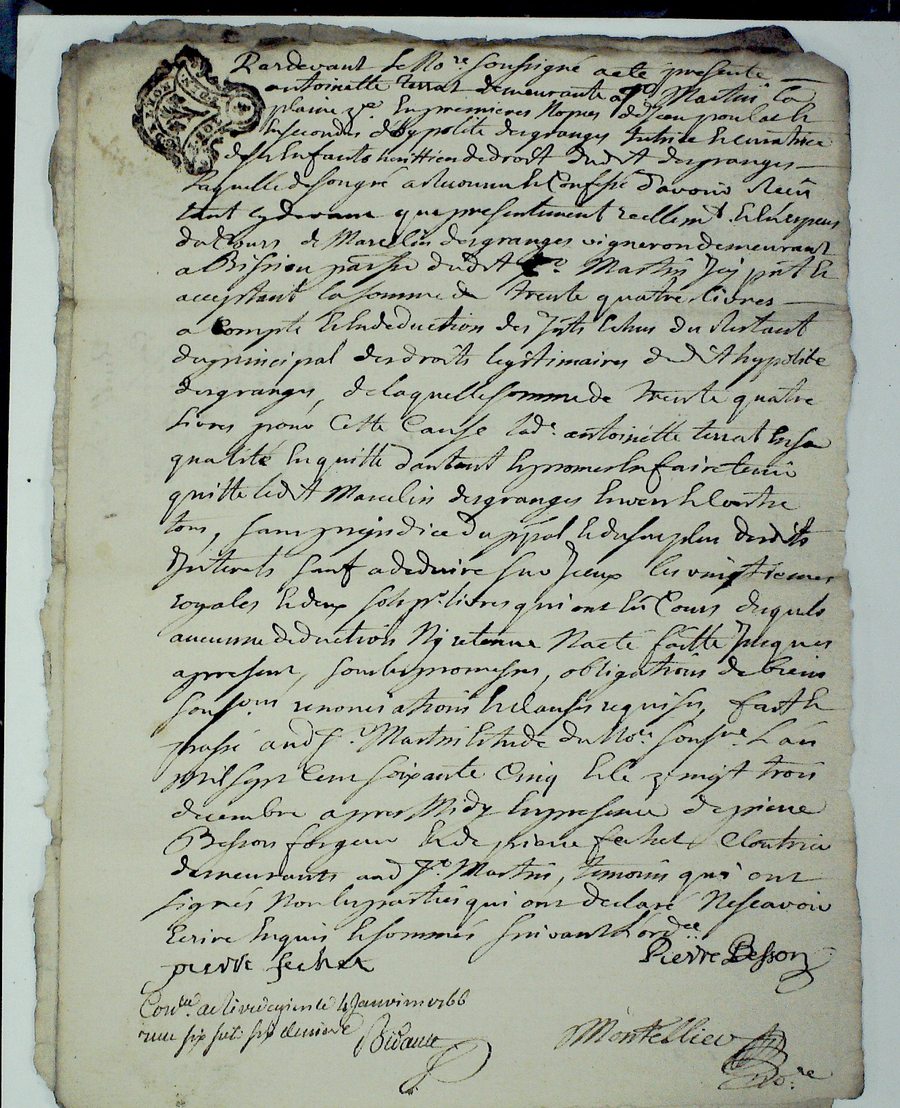 Pardevant le No.re soussigné a eté presente
antoinette terrat demeurante a St Martin la
plaine en premieres Nopces de Jean poulat et
en secondes d'hypolite desgranges tutrice et curatrice
des Enfants heritiers de droit dudit desgranges
Laquelle de son gré a reconnu et Confessé d'avoir Receu
tant cy devant que presentement reellem.t et en especes
du Cours de Marcelin desgranges vigneron demeurant
a Bissieu parroisse dudit St Martin Icy p.nt et
acceptant la somme de trente quatre livres
a Compte et en deduction des Jnts echus du Restant
du principal des droits legitimaires dudit hypolite
desgranges, de laquelle somme de trente quatre
livres pour Cette Cause lad.e antoinette terrat En sa
qualité En quitte d'autant et promet En faire tenir
quitte ledit Marcelin desgranges Envers et Contre
tous, sans prejudice du p.pal et du surplus desdits
Jnterets sauf a deduire sur Jceux les vingtiemes
royales et deux sols p.r livres qui ont Eu Cours desquels
aucunne deduction Ny retenue N'a eté faitte Jusques
apresent, sous les promesses, obligations de biens
soumissions renonciations et clauses requises, fait et
passé aud. St Martin Etude du No.re souss.né L'an
Mil sept Cent soixante Cinq et le vingt trois
decembre apres Midy En presence de pierre
Besson forgeur et de pierre fechet Cloutrier
demeurants aud St Martin, temoins qui ont
signés Non les parties qui ont declaré Ne scavoir
Ecrire Enquis et sommés suivant l'ord.ce
pierre fechet Pierre Besson
Con.lé a Rivedegier le 4 Janvier 1766
Reçu six sols six deniers
Montellier
No.re